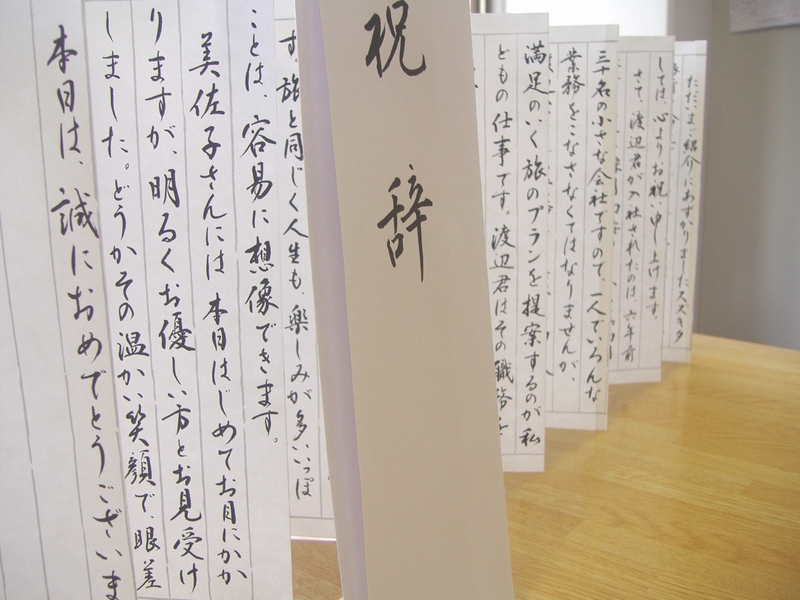 ただいまご紹介にあずかりましたスズキタ
しては、心よりお祝い申し上げます。
さて、渡辺君が入社されたのは、六年前
三十名の小さな会社ですので、一人でいろんな
業務をこなさなくてはなりませんが、
満足のいく旅のプランを提案するのが私
どもの仕事です。渡辺君はその職務を
祝辞
す。旅と同じく人生も、楽しみが多いっぽ
ことは、容易に想像できます。
美佐子さんには本日はじめてお目にかか
りますが、明るくお優しい方とお見受け
しました。どうかその温かい笑顔で、眼差
本日は、誠におめでとうございま